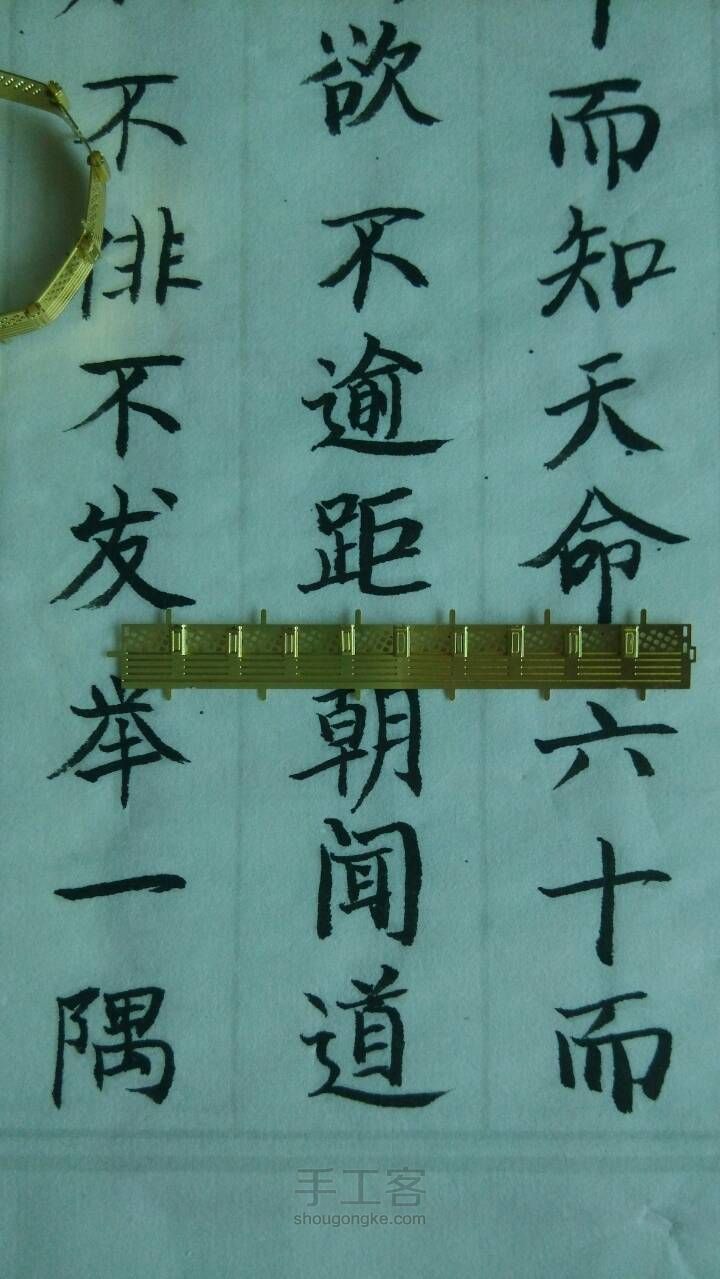 而知天命六十而
欲不逾距朝闻道
不俳不发举一隅
手工客
shougongke.com